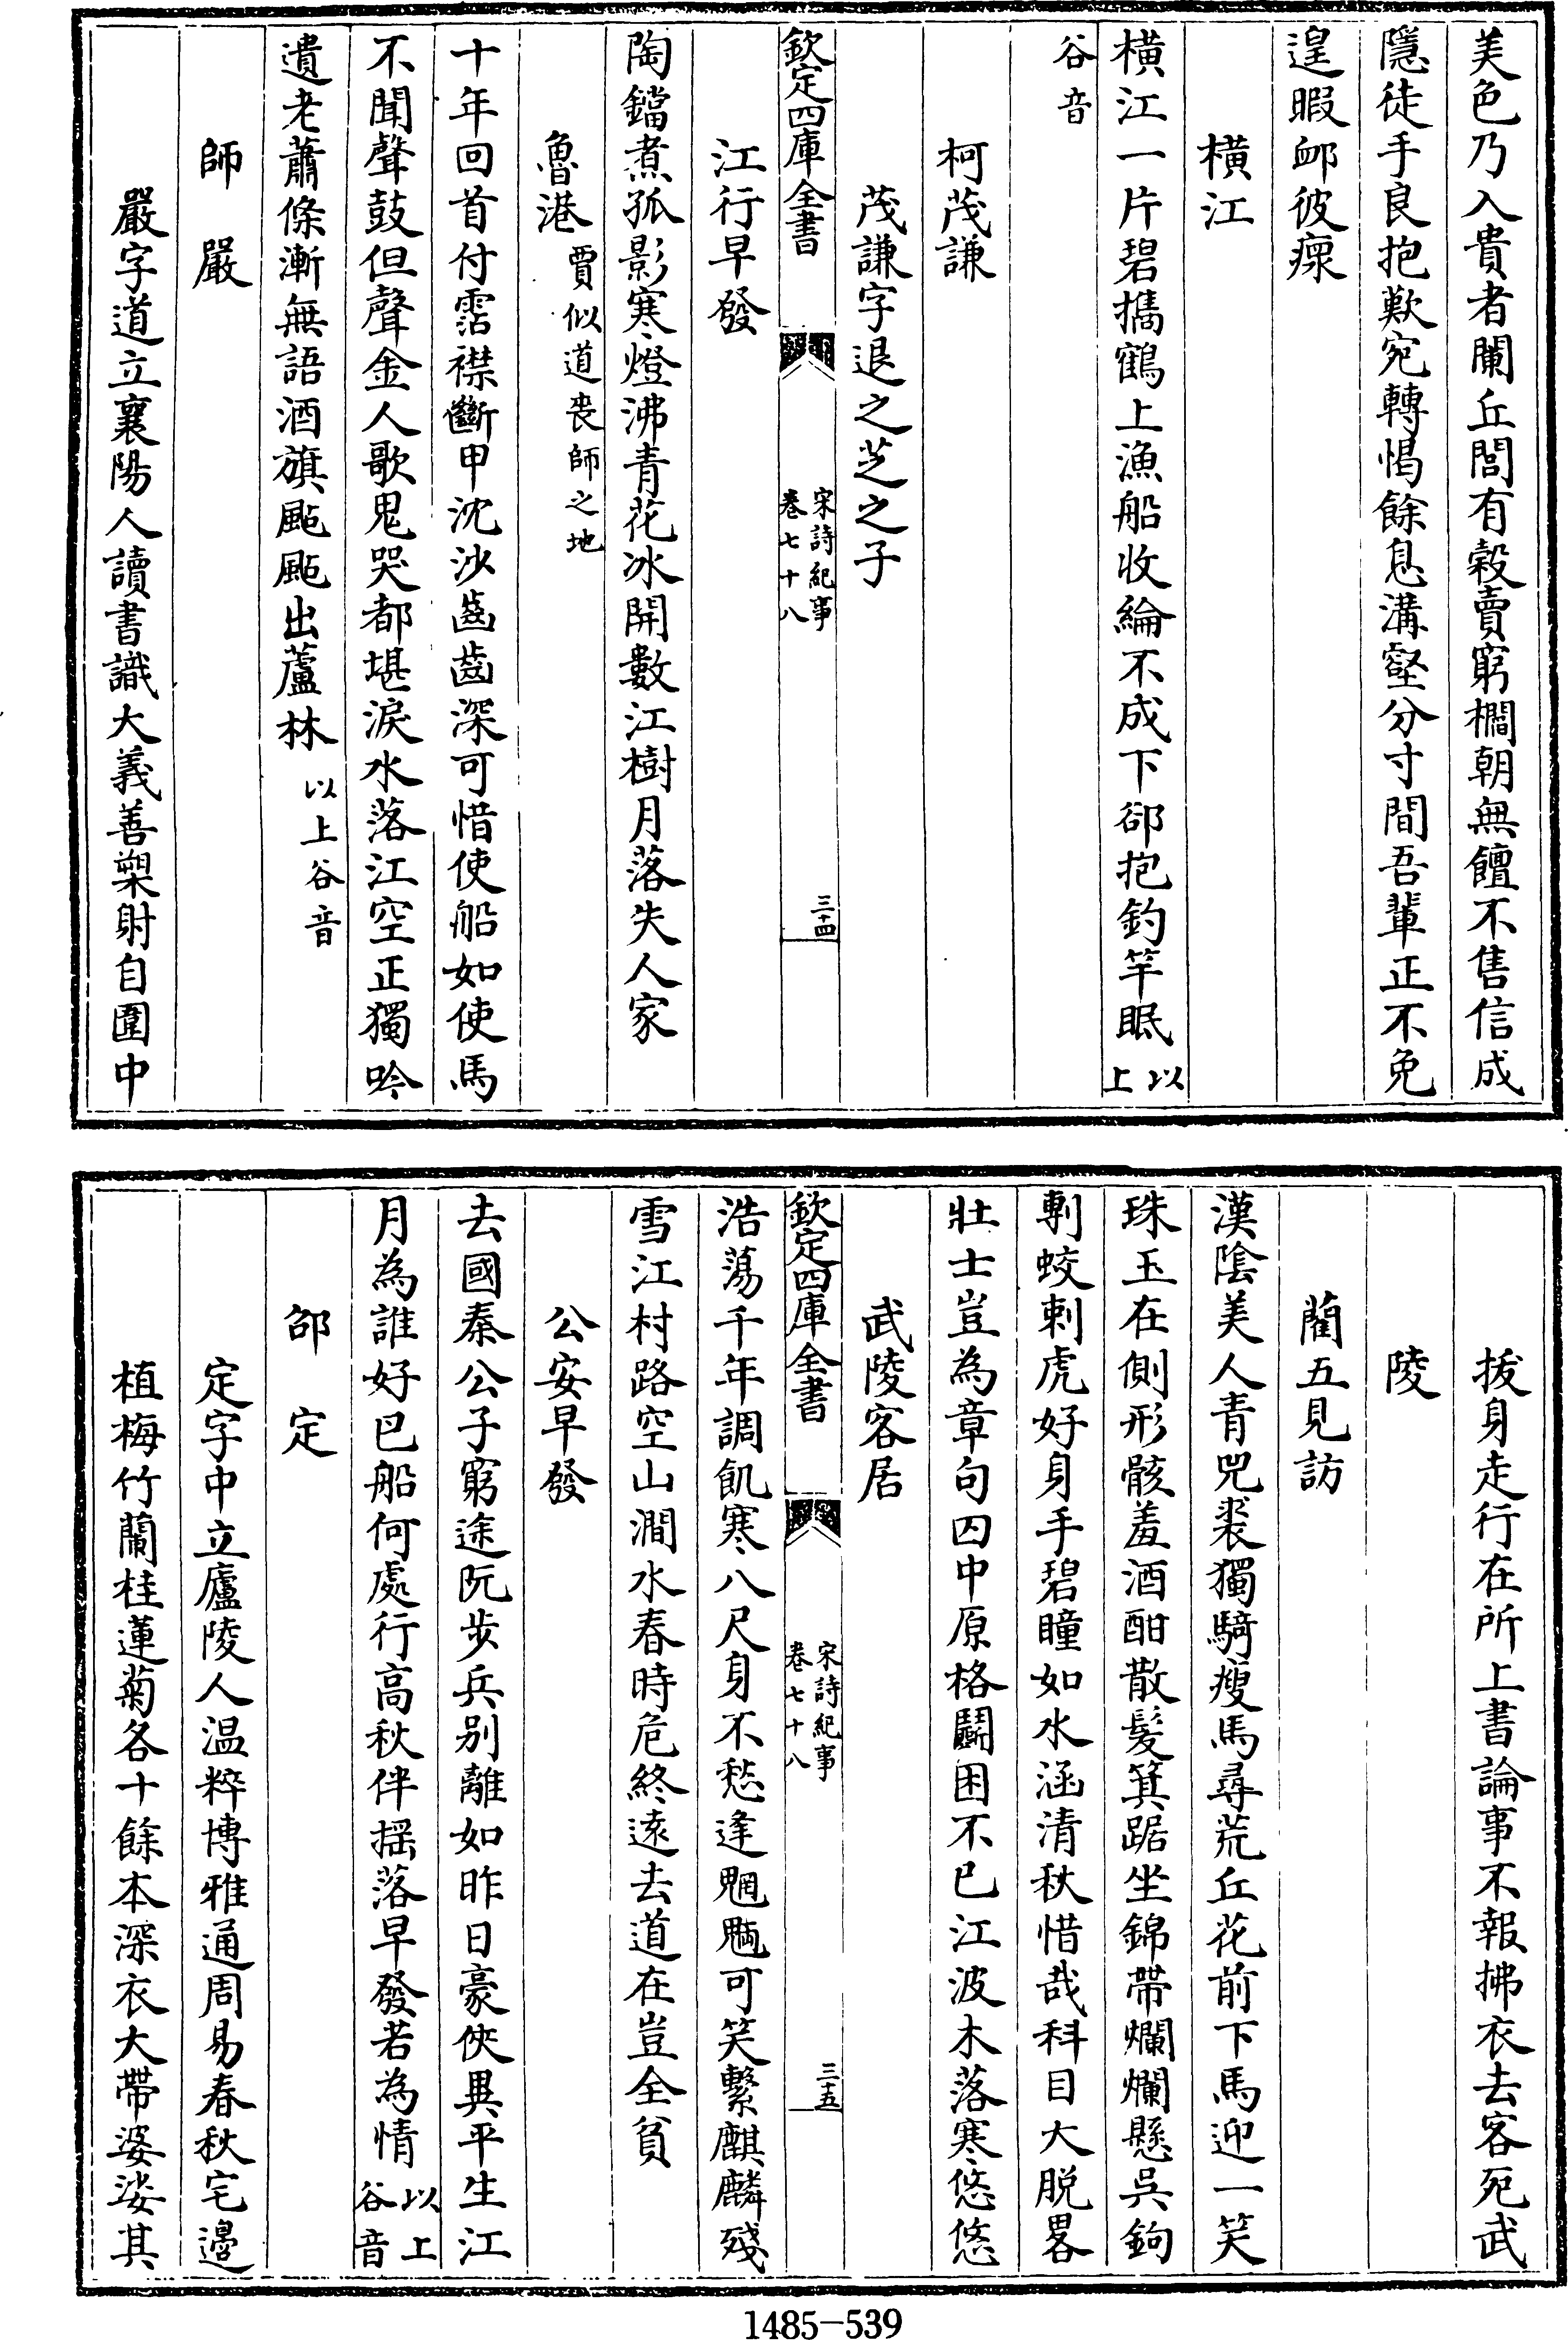 美色乃入貴者闌丘閭有榖賣窮櫩朝無饘不售信成
隱徒手良抱歎宛轉愒餘息溝壑分寸間吾輩正不免
遑暇䘏彼瘝
橫江
橫江一片碧攜鶴上漁船收綸不成下郤抱釣竿眠以上
谷音
柯茂謙
茂謙字退之芝之子
欽定四庫全書
宋詩紀事
卷七十八
三十四
江行早發
陶鐺煮孤影寒燈沸青花冰開數江樹月落失人家
魯港賈似道喪師之地
十年回首付霑襟斷甲沈沙齒齒深可惜使船如使馬
不聞聲鼓但聲金人歌鬼哭都堪淚水落江空正獨吟
遺老蕭條漸無語酒旗颭颭出蘆林以上谷音
師嚴
嚴字道立襄陽人讀書識大義善槊射自圍中
拔身走行在所上書論事不報拂衣去客死武
陵
藺五見訪
漢陰美人青兕裘獨騎瘦馬尋荒丘花前下馬迎一笑
珠玉在側形骸羞酒酣散髮箕踞坐錦帶爛爛懸吳鉤
剸蛟刺虎好身手碧瞳如水涵清秋惜哉科目大脫畧
壯士豈為章句囚中原格鬭困不已江波木落寒悠悠
武陵客居
欽定四庫全書
宋詩紀事
卷七十八
三十五
浩蕩千年調飢寒八尺身不愁逢魍魎可笑繫麒麟殘
雪江村路空山澗水春時危終遠去道在豈全貧
公安早發
去國秦公子窮途阮步兵別離如昨日豪俠異平生江
月為誰好巴船何處行高秋伴搖落早發若為情以上谷音
邵定
定字中立廬陵人温粹博雅通周易春秋宅邊
植梅竹蘭桂蓮菊各十餘本深衣大帶婆娑其
1485-539